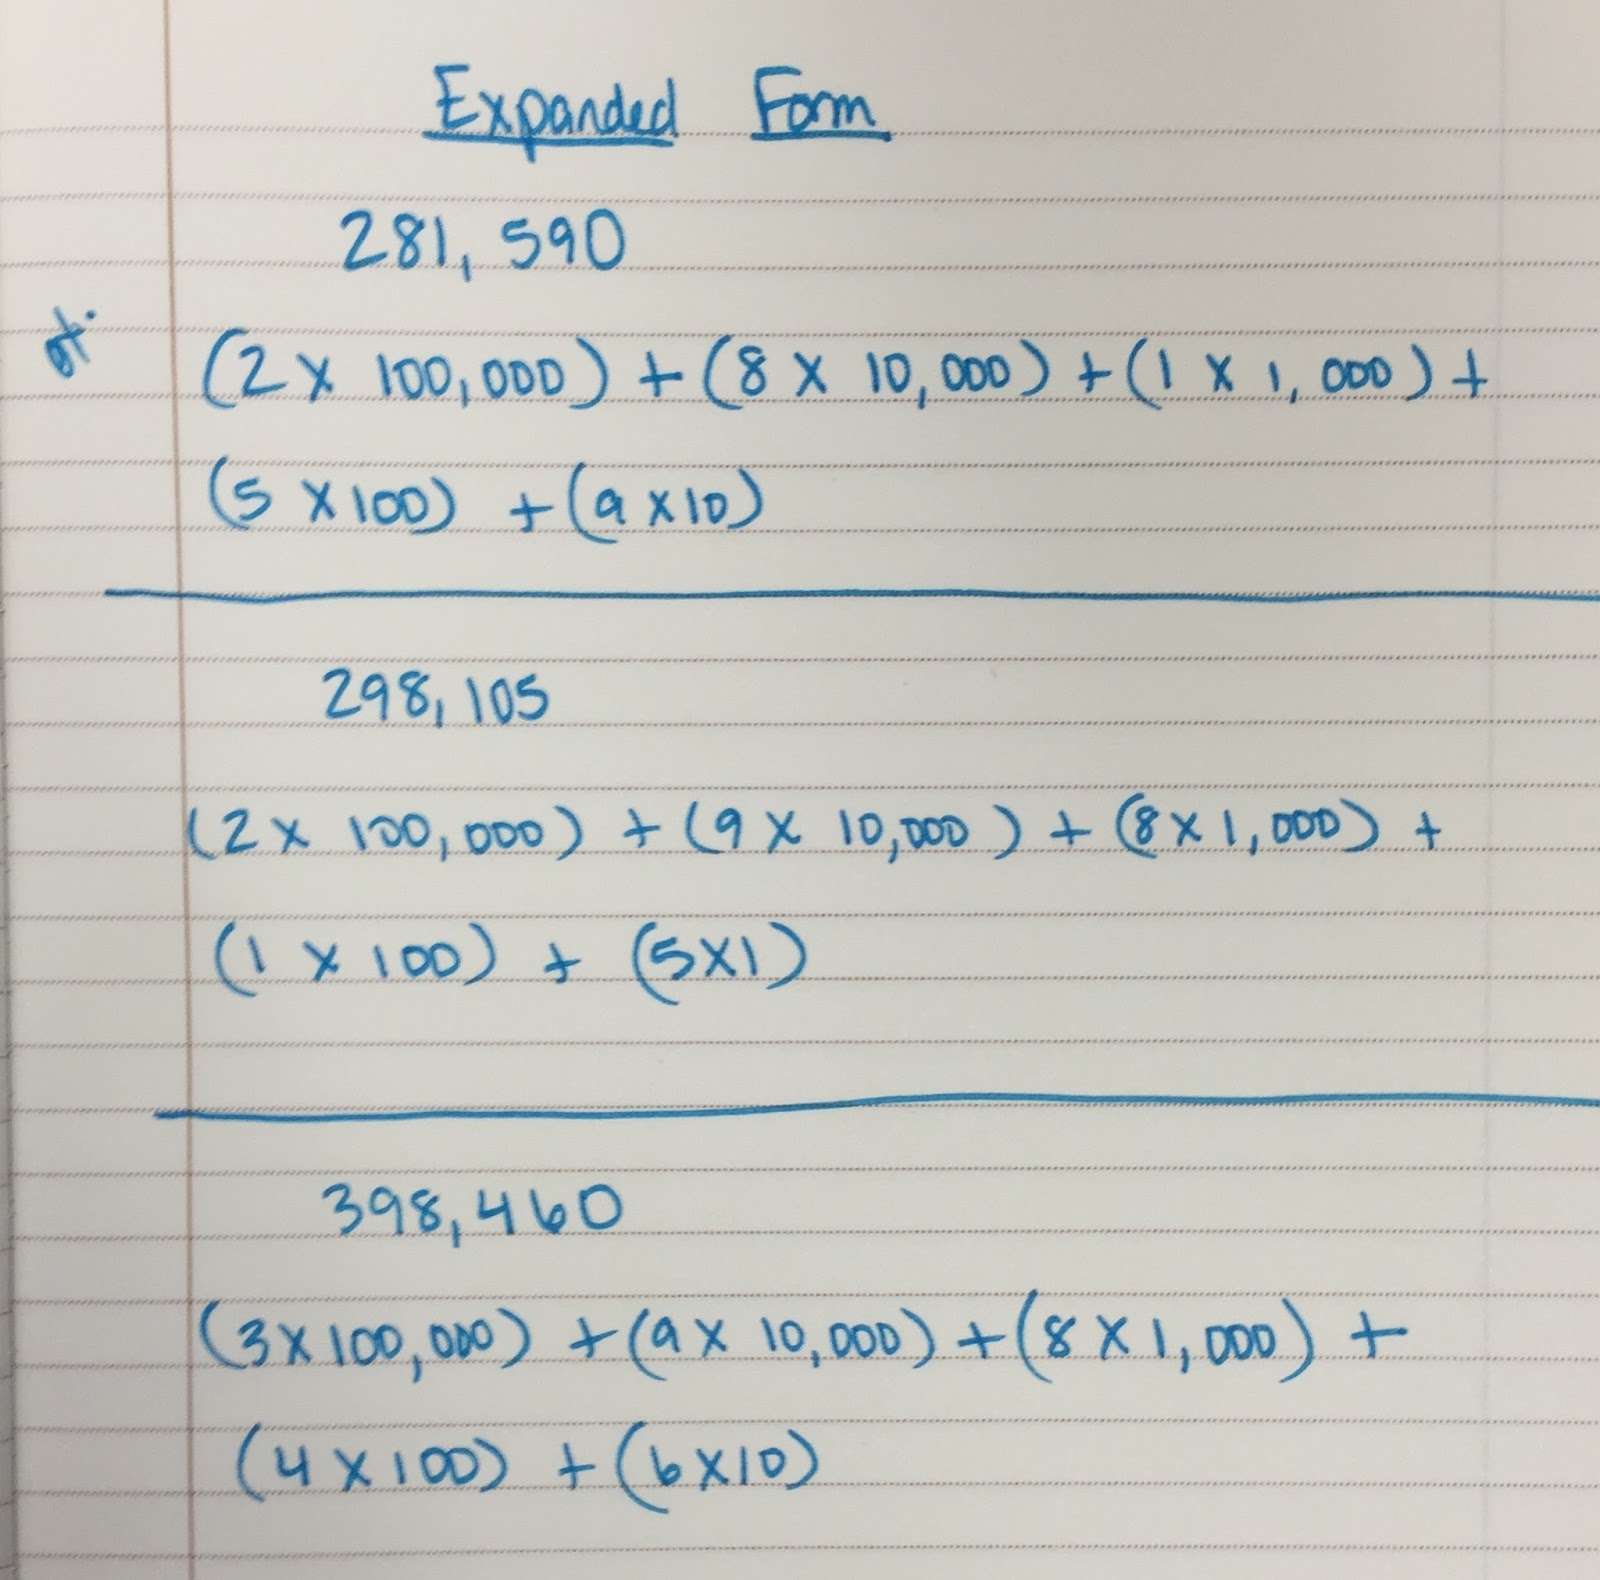 Expanded Form
281, 590
(2 x 100,000) + (8 x 10,000) + (1 x 1,000) +
(5 x 100) + (9 x 10)
298, 105
(2 x 100,000) + (9 x 10,000) + (8 x 1,000) +
(1 x 100) + (5 x 1)
398,460
(3 x 100,000) + (9 x 10,000) + (8 x 1,000) +
(4 x 100) + (6 x 10)